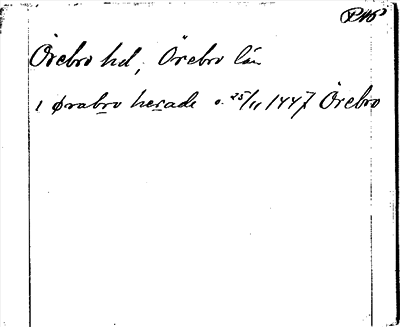 Örebro hd, Örebro län
i ørabro herade o. 25/11 1447 Örebro